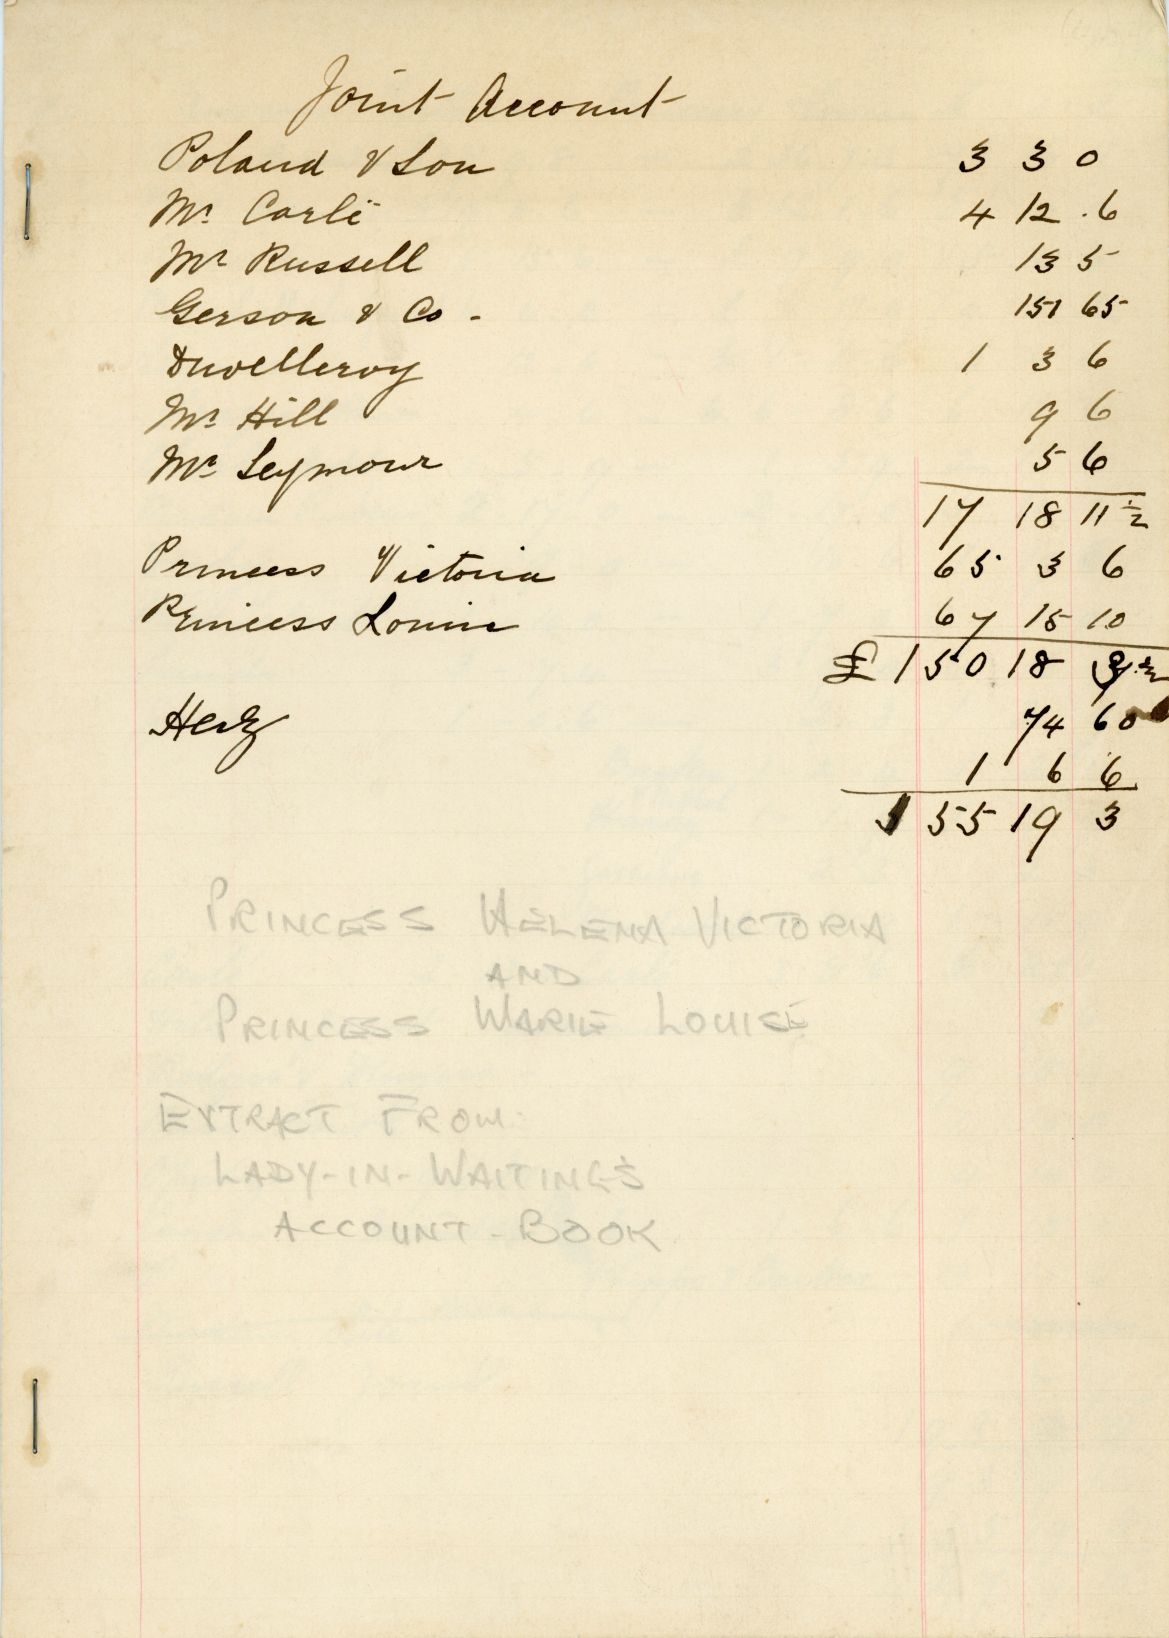 Joint Account
Poland & Son 3 3 0
Mr Carli 4 12 .6
Mr Russell 13 5
Gerson & Co - 151 65
Duvelleroy 1 3 6
Mr Hill 9 6
Mr Seymour 5 6
17 18 11½
Princess Victoria 65 3 6
Princess Louise 67 15 10
£ 150 18
74 60
1 6 6
155 19 3
PRINCESS HELENA VICTORIA
AND
PRINCESS MARIE LOUISE
EXTRACT FROM
LADY-IN-WAITING'S
ACCOUNT-BOOK